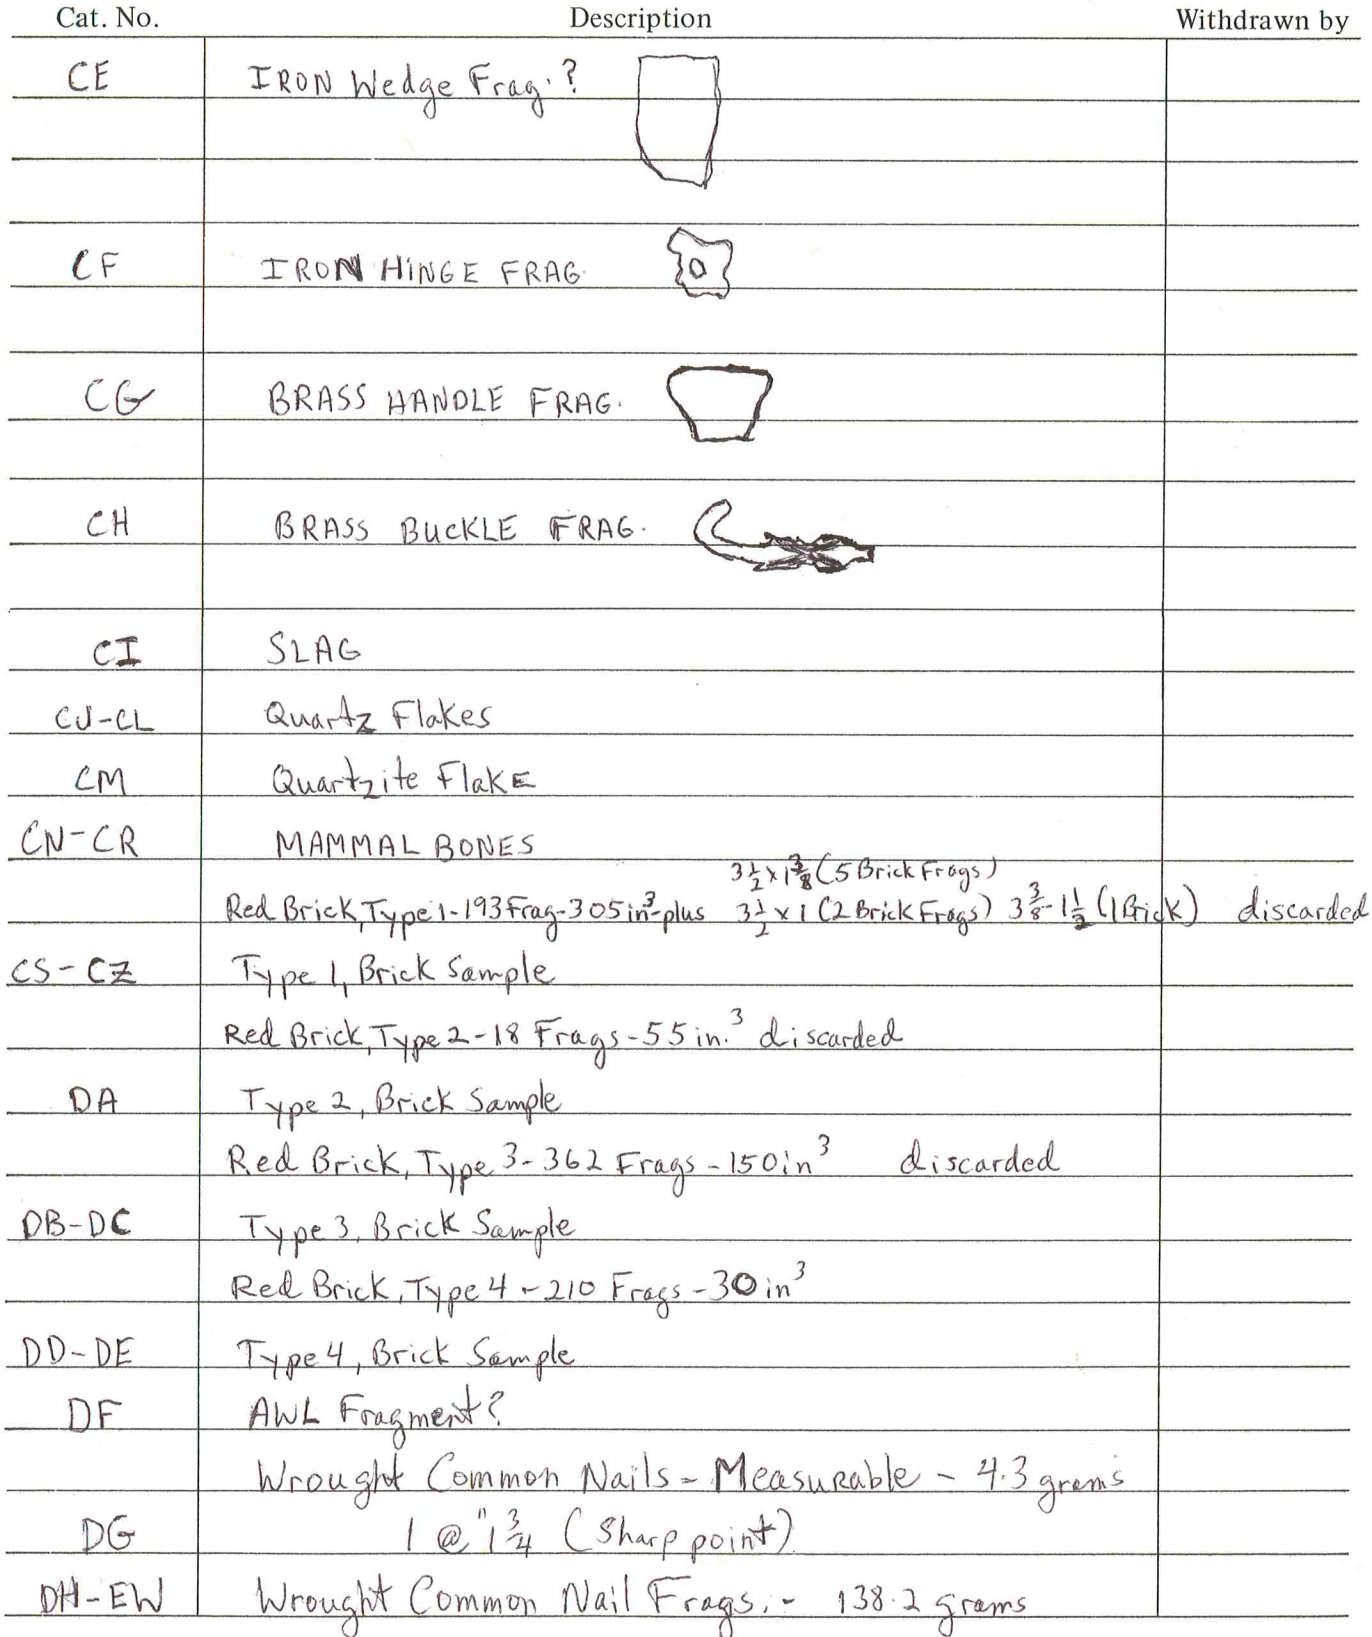 Cat. No. Description Withdrawn by
CE IRON Wedge Frag.?
CF IRON HINGE FRAG.
CG BRASS HANDLE FRAG.
CH BRASS BUCKLE FRAG.
CI SLAG
CJ-CL Quartz Flakes
CM Quartzite FlakE
CN-CR MAMMAL BONES
3 1/2 x 1 3/8 (5 Brick Frags)
Red Brick, Type 1-193 Frag-305 in³-plus 3 1/2 x 1 (2 Brick Frags) 3 3/8-1 1/2 (1 Brick) discarded
CS-CZ Type 1, Brick Sample
Red Brick, Type 2-18 Frags-55 in.³ discarded
DA Type 2, Brick Sample
Red Brick, Type 3-362 Frags-150 in³ discarded
DB-DC Type 3, Brick Sample
Red Brick, Type 4-210 Frags-30 in³
DD-DE Type 4, Brick Sample
DF AWL Fragment?
Wrought Common Nails - Measurable - 4.3 grams
DG 1 @ "1 3/4 (Sharp point)
DH-EW Wrought Common Nail Frags. - 138.2 grams